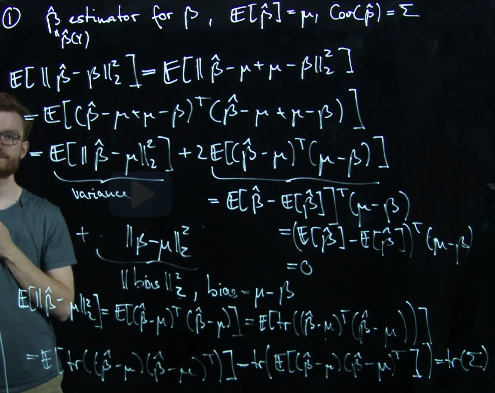 ① β̂ estimator for β, 𝔼[β̂] = μ, Cov(β̂) = Σ
β̂(Y)
𝔼[‖β̂ - β‖₂²] = 𝔼[‖β̂ - μ + μ - β‖₂²]
= 𝔼[(β̂ - μ + μ - β)ᵀ(β̂ - μ + μ - β)]
= 𝔼[‖β̂ - μ‖₂²] + 2𝔼[(β̂ - μ)ᵀ(μ - β)]
variance = 𝔼[β̂ - 𝔼[β̂]]ᵀ(μ - β)
+ ‖β - μ‖₂² = (𝔼[β̂] - 𝔼[β̂])ᵀ(μ - β)
= 0
‖bias‖₂², bias = μ - β
𝔼[‖β̂ - μ‖₂²] = 𝔼[(β̂ - μ)ᵀ(β̂ - μ)] = 𝔼[tr((β̂ - μ)ᵀ(β̂ - μ))]
= 𝔼[tr((β̂ - μ)(β̂ - μ)ᵀ)] = tr(𝔼[(β̂ - μ)(β̂ - μ)ᵀ]) = tr(Σ)